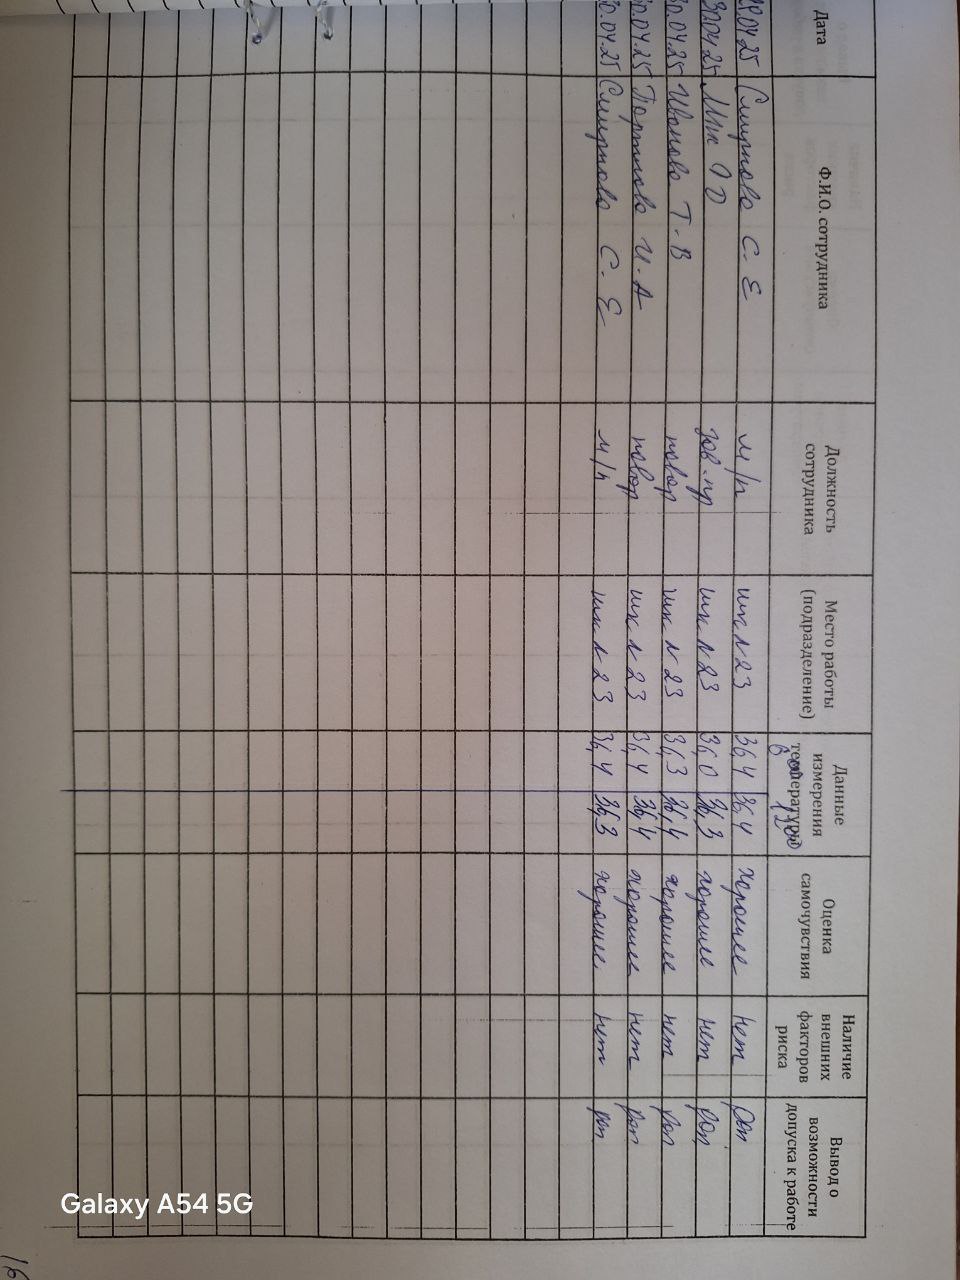 Дата Ф.И.О. сотрудника Должность сотрудника Место работы (подразделение) Данные измерения температуры Оценка самочувствия Наличие внешних факторов риска Вывод о возможности допуска к работе
04.25 Смирнова С. Е м/п шк N 23 36,4 36,4 хорошее нет доп
30.04.25 зав.пр шк N 23 36,0 36,3 хорошее нет доп
30.04.25 Иванова Т. В повар шк N 23 36,3 36,4 хорошее нет доп
30.04.25 И. А повар шк N 23 36,4 36,4 хорошее нет доп
30.04.25 Смирнова С. Е м/п шк N 23 36,4 36,3 хорошее нет доп
Galaxy A54 5G
16